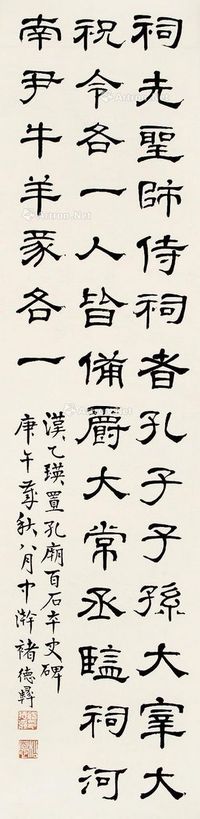 祠先聖師侍祠者孔子子孫大宰大
祝令各一人皆備爵大常丞監祠河
南尹牛羊豕各一
漢乙瑛置孔廟百石卒史碑
庚午歲秋八月中澣褚德彝
Artron.Net